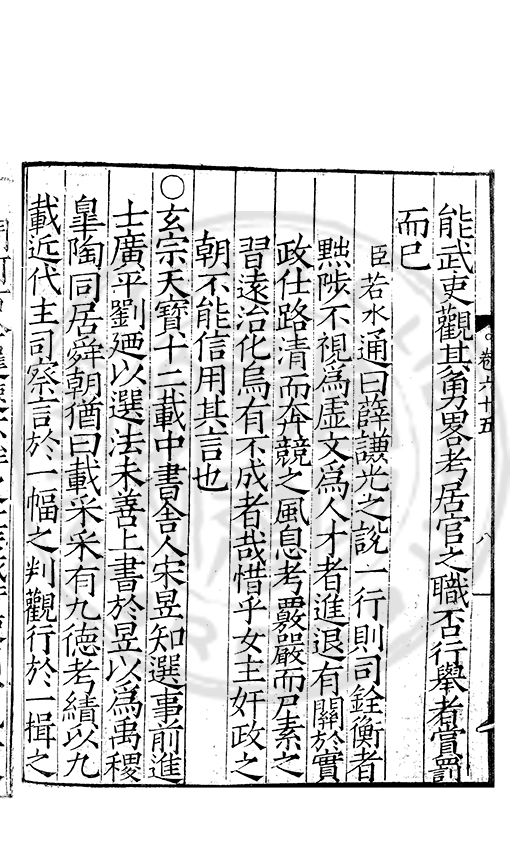 能武吏觀其勇畧考居官之職否行舉者賞罰
而巳
臣若水通曰薛謙光之説一行則司銓衡者
黜陟不視爲虚文爲人才者進退有關於實
政仕路清而奔競之風息考覈嚴而尸素之
習遠治化烏有不成者哉惜乎女主奸政之
朝不能信用其言也
○玄宗天寳十二載中書舎人宋昱知選事前進
士廣平劉廼以選法未善上書於昱以爲禹稷
臯陶同居舜朝猶曰載采采有九徳考績以九
載近代主司察言於一幅之判觀行於一揖之
卷六十五
八